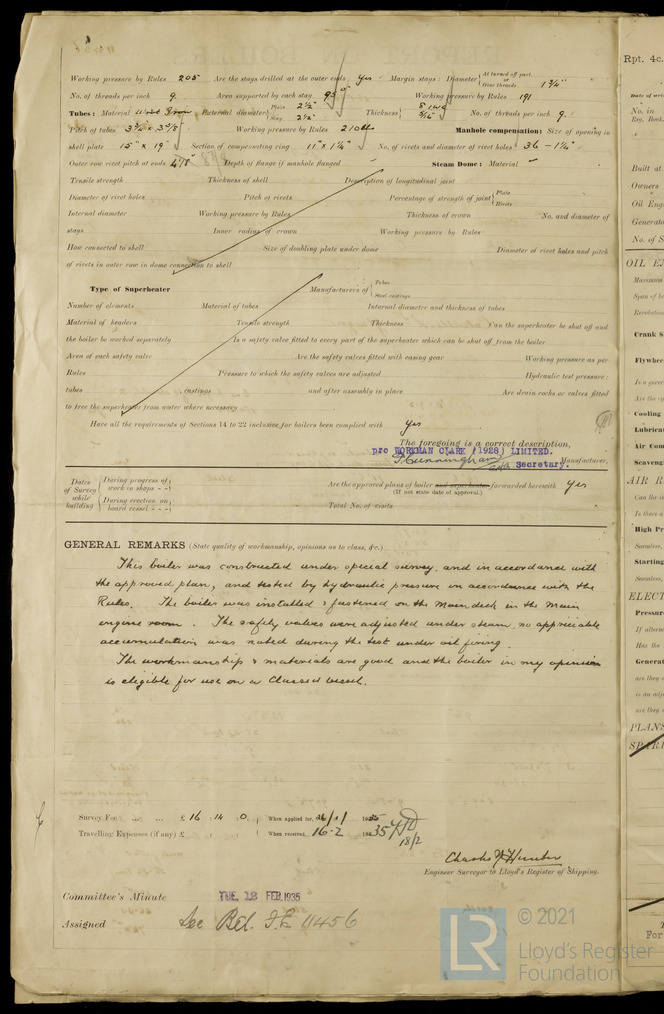 Working pressure by Rules 205 Are the stays drilled at the outer ends Yes Margin stays : Diameter { At turned off part, or Over threads 1 3/4"
No. of threads per inch 9. Area supported by each stay Working pressure by Rules 191
Tubes : Material External diameter { Plain 2 1/2" Stay 2 1/2" Thickness { 8 iwg 5/16" No. of threads per inch 9.
Pitch of tubes Working pressure by Rules Manhole compensation : Size of opening in
shell plate 15" x 19" Section of compensating ring 11" x 1 1/4" No. of rivets and diameter of rivet holes 36 - 1 1/4"
Outer row rivet pitch at ends Depth of flange if manhole flanged Steam Dome : Material
Tensile strength Thickness of shell Description of longitudinal joint
Diameter of rivet holes Pitch of rivets Percentage of strength of joint { Plate Rivets
Internal diameter Working pressure by Rules Thickness of crown No. and diameter of
stays Inner radius of crown Working pressure by Rules
How connected to shell Size of doubling plate under dome Diameter of rivet holes and pitch
of rivets in outer row in dome connection to shell
Type of Superheater Manufacturers of { Tubes Steel castings
Number of elements Material of tubes Internal diameter and thickness of tubes
Material of headers Tensile strength Thickness Can the superheater be shut off and
the boiler be worked separately Is a safety valve fitted to every part of the superheater which can be shut off from the boiler
Area of each safety valve Are the safety valves fitted with easing gear Working pressure as per
Rules Pressure to which the safety valves are adjusted Hydraulic test pressure :
tubes castings and after assembly in place Are drain cocks or valves fitted
to free the superheater from water where necessary
Have all the requirements of Sections 14 to 22 inclusive for boilers been complied with Yes
The foregoing is a correct description,
pro WORKMAN CLARK (1928) LIMITED.
Cunningham Secretary. Manufacturer.
Dates of Survey while building { During progress of work in shops - - } Are the approved plans of boiler and superheater forwarded herewith Yes
(If not state date of approval.)
{ During erection on board vessel - - - } Total No. of visits
GENERAL REMARKS (State quality of workmanship, opinions as to class, &c.)
This boiler was constructed under special survey, and in accordance with
the approved plan, and tested by hydraulic pressure in accordance with the
Rules. The boiler was installed & fastened on the main deck in the main
engine room. The safety valves were adjusted under steam, no appreciable
accumulation was noted during the test under oil firing.
The workmanship & materials are good and the boiler in my opinion
is eligible for use on a Classed vessel.
Survey Fee ... ... £ 16 : 14 : 0. When applied for, 19
Travelling Expenses (if any) £ : : When received, 16.2 1935
18/2
Charles Hunter
Engineer Surveyor to Lloyd's Register of Shipping.
Committee's Minute TUE. 12 FEB. 1935
Assigned See Bel. F.E. 11456
Rpt. 4c.
No. in
Reg. Book.
Built at
Owners
Oil Eng
Generato
No. of S
OIL EN
Maximum
Span of b
Revolution
Crank S
Flywhee
Is a gover
Are the cy
Cooling
Lubricat
Air Com
Scaveng
AIR R
Can the in
Is there a
High Pr
Seamless,
Starting
Seamless,
ELECT
Pressure
If alterne
Has the
Generat
are they
is an adj
are they
PLANS
SPARE
For
LR
© 2021
Lloyd's Register
Foundation